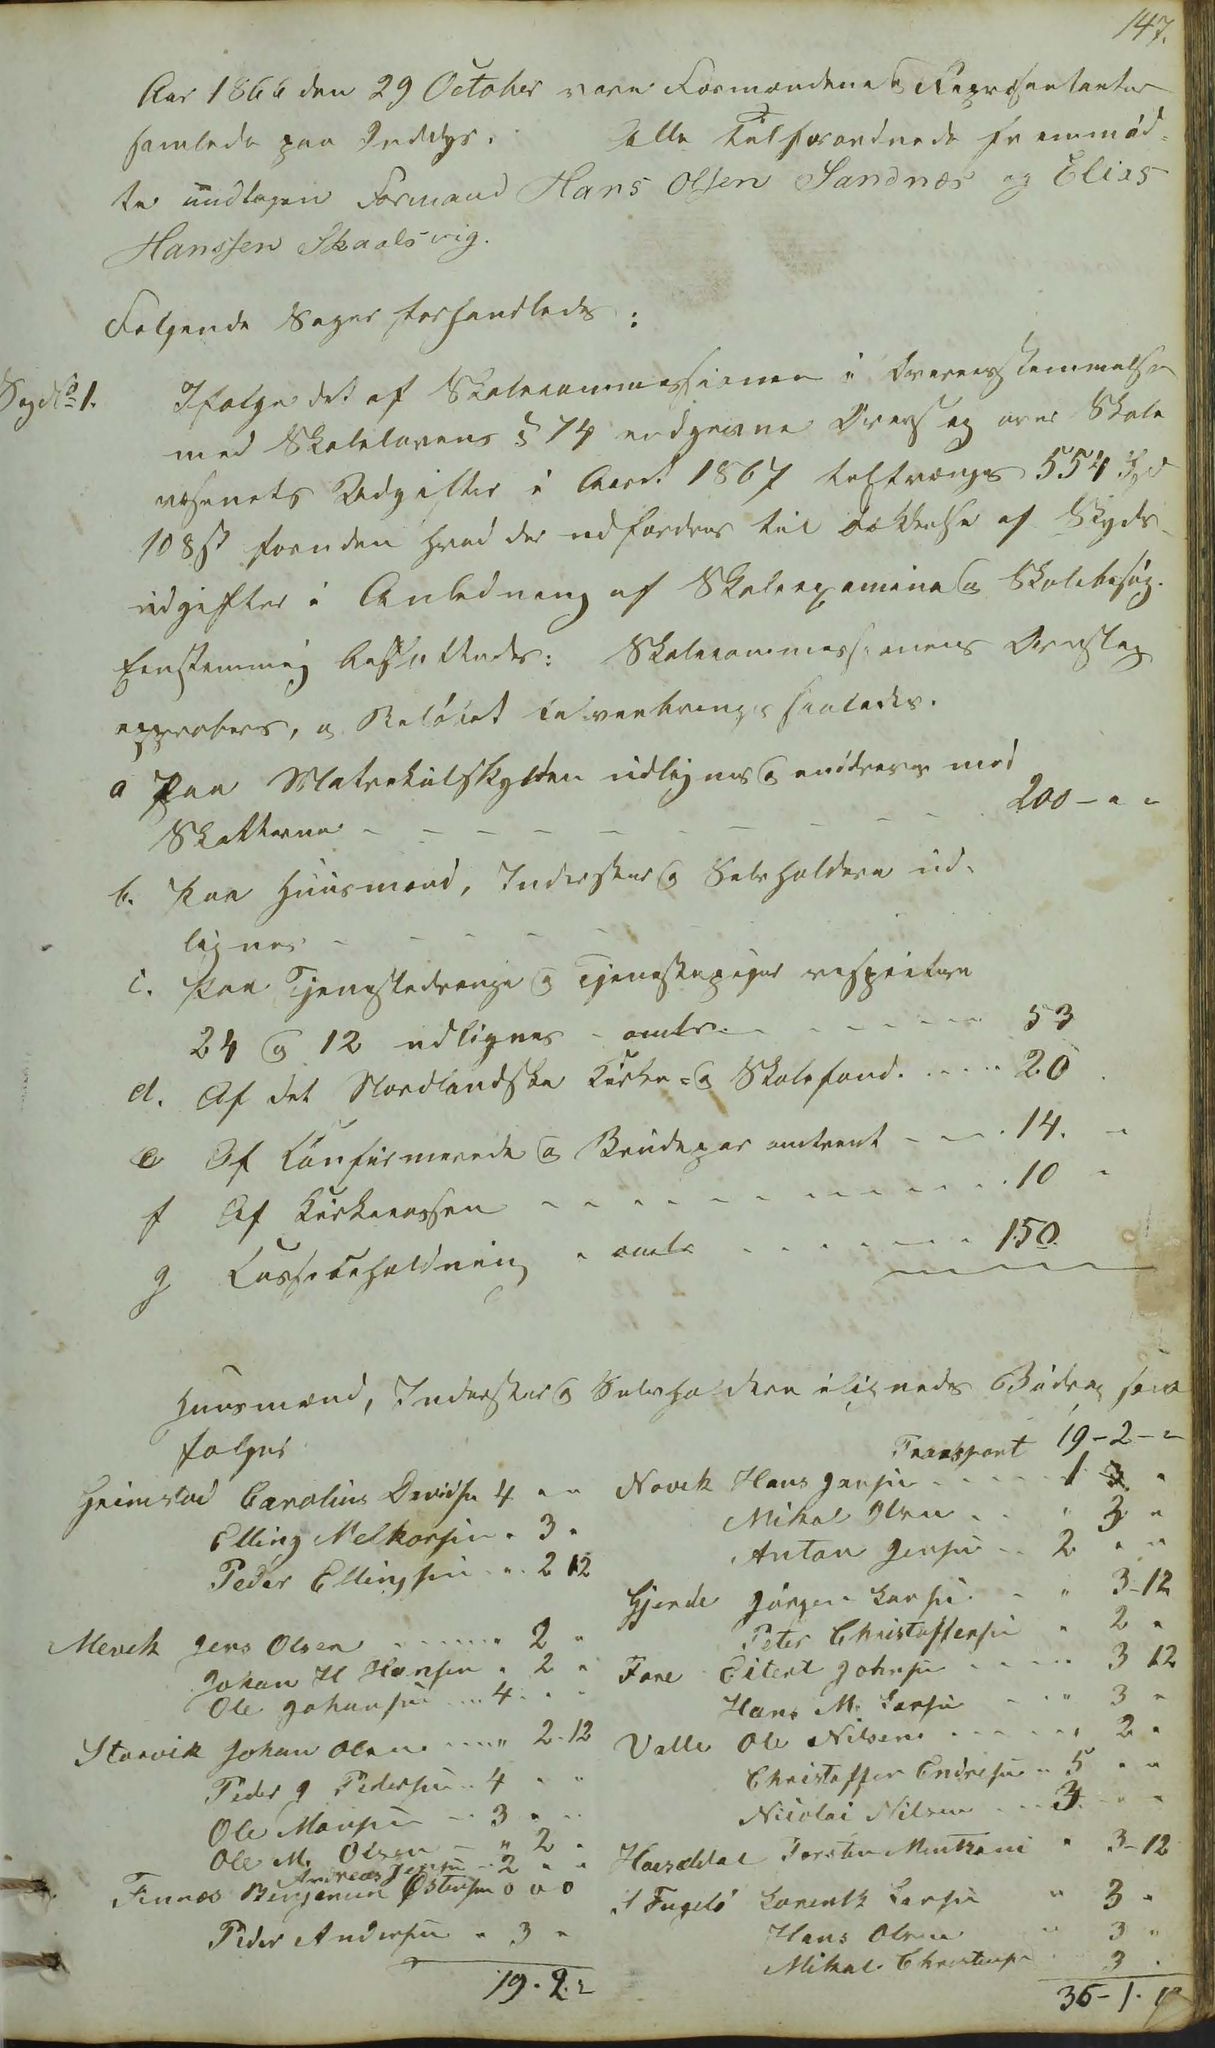 147.
Aar 1866 den 29 October vare Formændene & Repræsentanter
samlede paa Inddyr. Alle tilforordnede fremmød-
te undtagen Formand Hans Olsen Sandnæs og Elias
Hanssen Skaalsvig.
Følgende Sager forhandledes:
Sag No 1. Ifølge det af Skolecommissionen i Overensstemmelse
med Skolelovens § 74 indgivne Overslag over Skole
væsenets Udgifter i Aaret 1867 tiltrænges 554 Spd
108 ß foruden hvad der udfordres til Dækkelse af Skyds-
udgifter i Anledning af Skoleexamina & Skolebesøg.
Eenstemmig besluttedes: Skolecommissionens Overslag
approberes, og Beløbet tilveiebringes saaledes.
a Paa Matrikulskylden udlignes & inddrives med
Skatterne - - - - - - - - 200 - " "
b. Paa Huusmænd, Inderster & Selvholdere ud-
lignes - - - - -
c. Paa Tjenestedrenge & Tjenestepiger respective
24 & 12 udlignes - omtr. - - - - - 53
d. Af det Nordlandske Kirke- & Skolefond. .... 20
e Af Confirmerede & Brudepar omtrent - - - 14. "
f Af Kirkecassen - - - - - - - - 10 "
g Cassebeholdning - omtr - - - - - 150.
Huusmænd, Inderster & Selvholdere ilignedes Bidrag som
følger
Transport 19 - 2 - "
Heimstad Carolius Davids. 4 " "
Elling Melkorsen " 3 "
Peder Ellingsen " 2 12
Mevik Jens Olsen " 2 "
Johan H Hansen " 2 "
Ole Johansen 4 " "
Storvik Johan Olsen " 2-12
Peder J Pedersen 4 " "
Ole Monsen 3 " "
Ole M. Olsen " 2 "
Andreas Jensen 2 " "
Finnæs Benjamin Østensen 0 0 0
Peder Andersen " 3 "
19. 2. "
Novik Hans Jensen 1 3 "
Mikal Olsen " 3 "
Anton Jensen 2 " "
Gjerde Jørgen Larsen " 3-12
Peter Christoffersen " 2 "
Fore Eitert Johnsen 3 12
Hans M. Larsen " 3 "
Valle Ole Nilsen " 2 "
Christoffer Endresen 5 " "
Nicolai Nilsen 3 " "
Torsten " 3-12
S Fugelø Lorentz Larsen " 3 "
Hans Olsen " 3 "
Mikal Christens. 3 "
36 - 1. 12